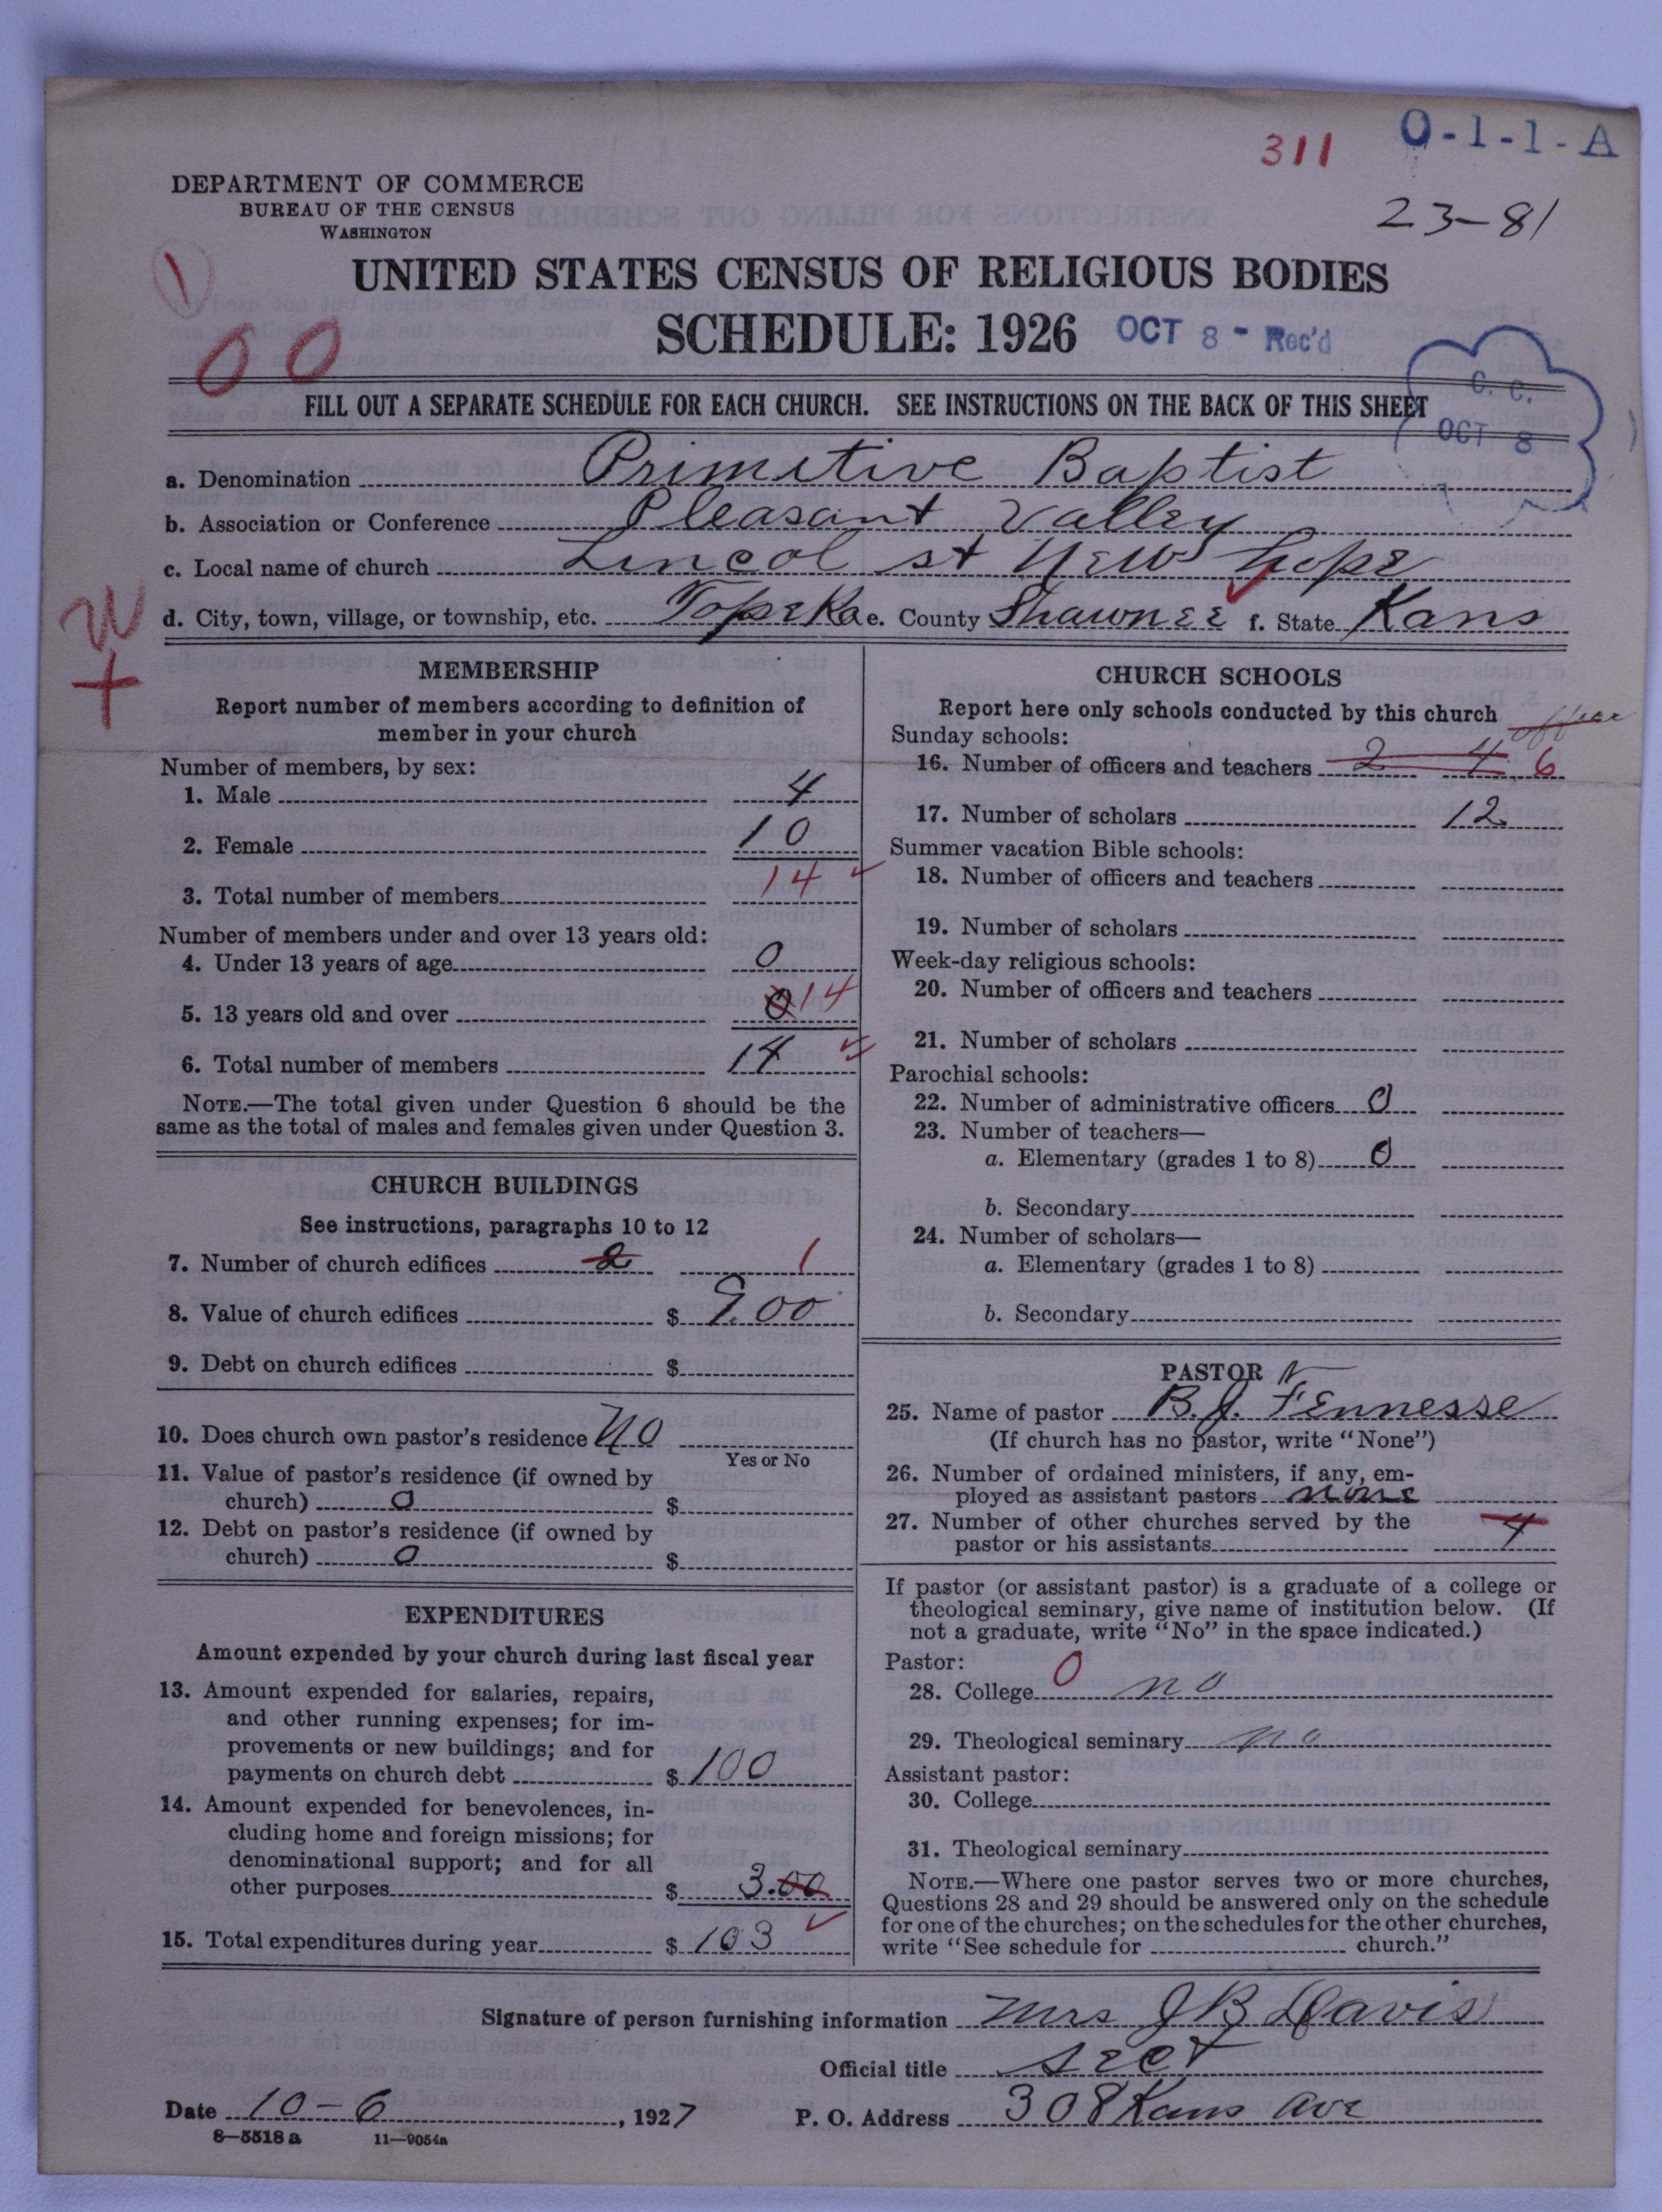 311 O-1-1-A
DEPARTMENT OF COMMERCE
BUREAU OF THE CENSUS
WASHINGTON
23-81
1
UNITED STATES CENSUS OF RELIGIOUS BODIES
SCHEDULE: 1926 OCT 8 - Rec'd
00
C. C.
OCT 8
FILL OUT A SEPARATE SCHEDULE FOR EACH CHURCH. SEE INSTRUCTIONS ON THE BACK OF THIS SHEET
a. Denomination Primitive Baptist
b. Association or Conference Pleasant Valley
c. Local name of church Lincol st New hope
d. City, town, village, or township, etc. Topeka e. County Shawnee f. State Kans
W
+
MEMBERSHIP
Report number of members according to definition of
member in your church
Number of members, by sex:
1. Male 4
2. Female 10
3. Total number of members 14
Number of members under and over 13 years old:
4. Under 13 years of age 0
5. 13 years old and over 0 14
6. Total number of members 14
NOTE.—The total given under Question 6 should be the
same as the total of males and females given under Question 3.
CHURCH BUILDINGS
See instructions, paragraphs 10 to 12
7. Number of church edifices 2 1
8. Value of church edifices $ 900
9. Debt on church edifices $
10. Does church own pastor's residence No
Yes or No
11. Value of pastor's residence (if owned by
church) 0 $
12. Debt on pastor's residence (if owned by
church) 0 $
EXPENDITURES
Amount expended by your church during last fiscal year
13. Amount expended for salaries, repairs,
and other running expenses; for im-
provements or new buildings; and for
payments on church debt $ 100
14. Amount expended for benevolences, in-
cluding home and foreign missions; for
denominational support; and for all
other purposes $ 3.00
15. Total expenditures during year $ 103
CHURCH SCHOOLS
Report here only schools conducted by this church
Sunday schools:
16. Number of officers and teachers 2 4 6
17. Number of scholars 12
Summer vacation Bible schools:
18. Number of officers and teachers
19. Number of scholars
Week-day religious schools:
20. Number of officers and teachers
21. Number of scholars
Parochial schools:
22. Number of administrative officers 0
23. Number of teachers—
a. Elementary (grades 1 to 8) 0
b. Secondary
24. Number of scholars—
a. Elementary (grades 1 to 8)
b. Secondary
PASTOR
25. Name of pastor B. J. Fennesse
(If church has no pastor, write "None")
26. Number of ordained ministers, if any, em-
ployed as assistant pastors none
27. Number of other churches served by the
pastor or his assistants 4
If pastor (or assistant pastor) is a graduate of a college or
theological seminary, give name of institution below. (If
not a graduate, write "No" in the space indicated.)
Pastor: 0
28. College no
29. Theological seminary no
Assistant pastor:
30. College
31. Theological seminary
NOTE.—Where one pastor serves two or more churches,
Questions 28 and 29 should be answered only on the schedule
for one of the churches; on the schedules for the other churches,
write "See schedule for church."
Signature of person furnishing information Mrs J B Davis
Official title sect
Date 10-6, 1927 P. O. Address 308 Kans ave
8-5518a 11-9054a